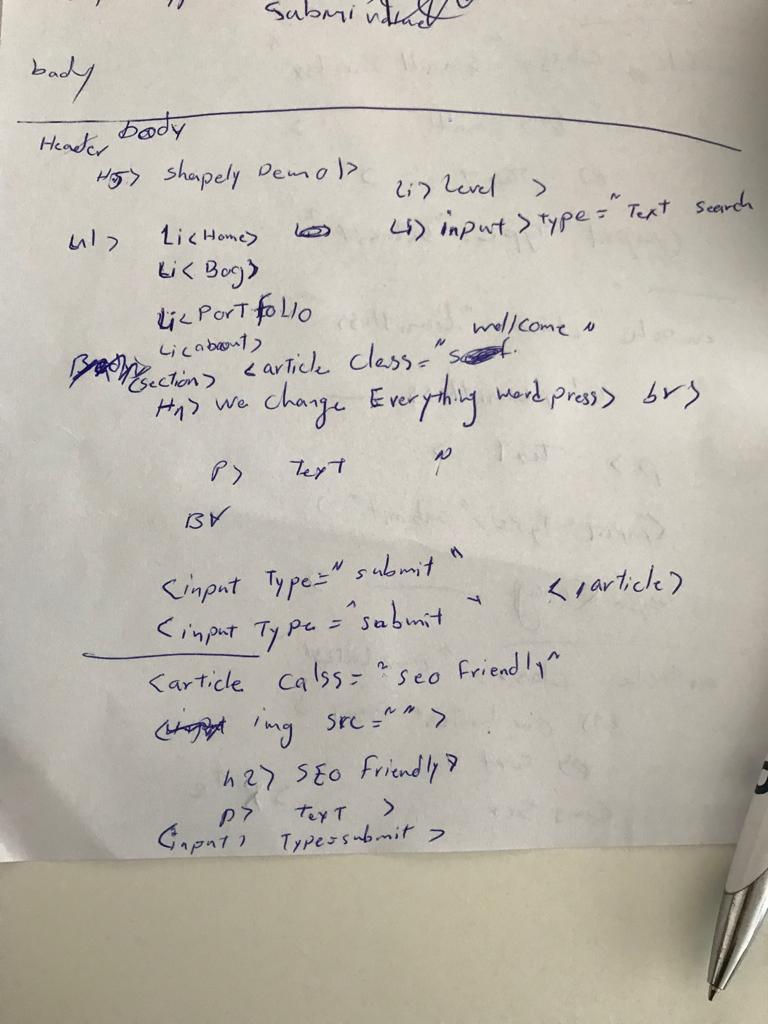 Submi
bady
body
Header
H5> Shapely Demo1>
Li> Level >
ul> Li<Home>
Li> input > type = " Text search
Li< Bog>
Li< Portfolio
Li<about>
wellcome "
(section> <article class="
H1> we change Everything word press> br>
P> Text
Br
<input Type=" submit "
<input Type = "submit "
</article>
<article calss= "seo friendly"
img src="" >
h2> SEO friendly>
p> text >
<input> Type=submit >